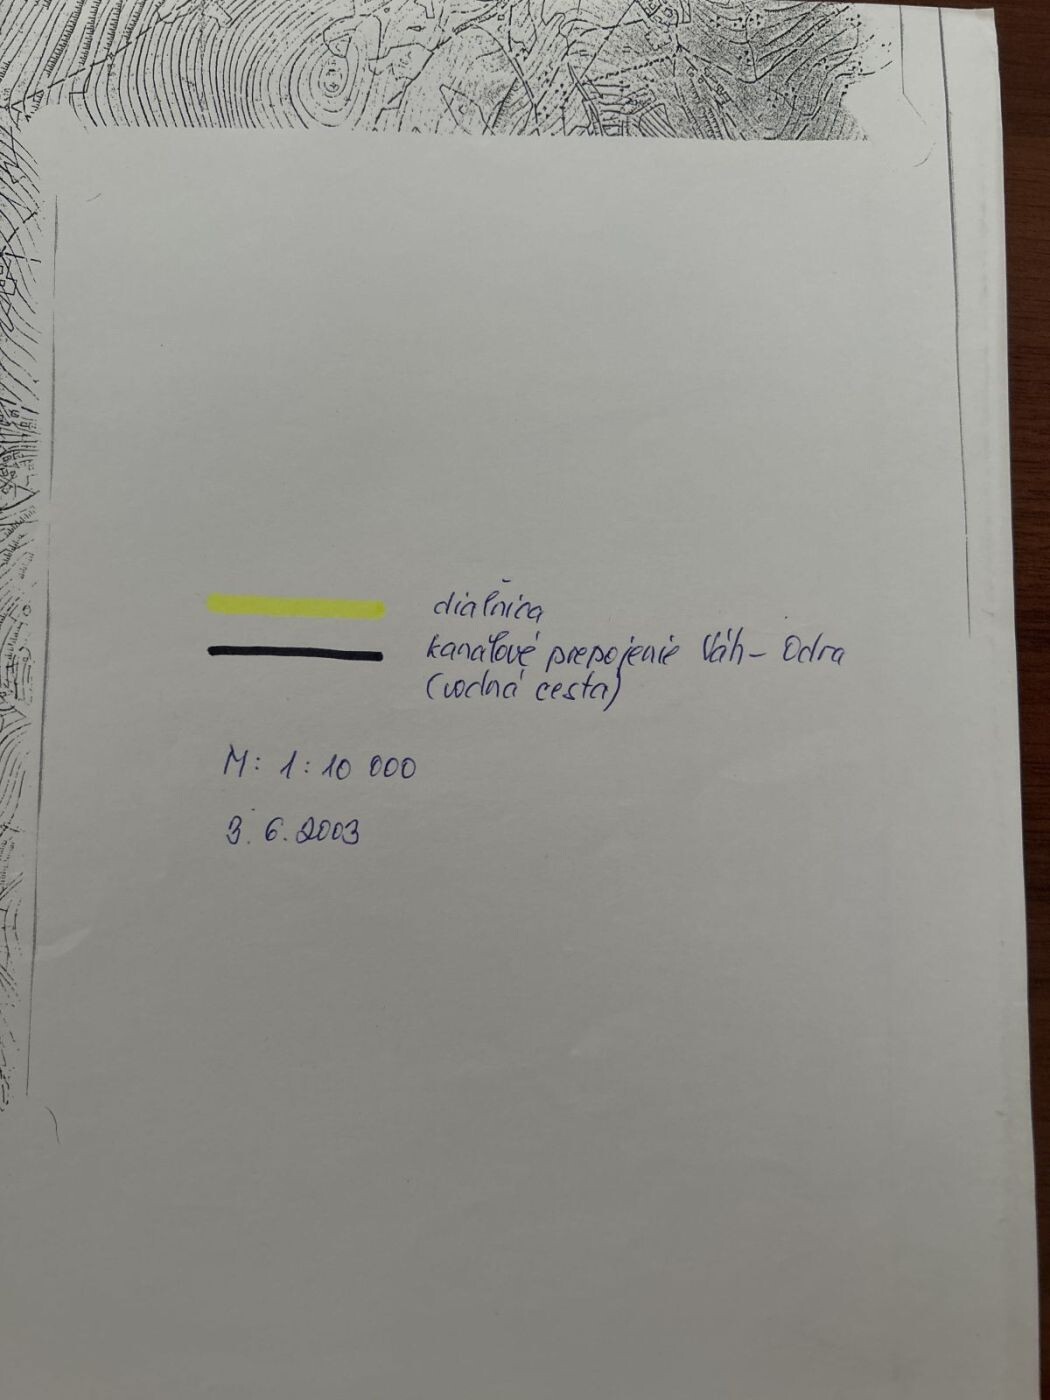 diaľnica
kanálové prepojenie Váh - Odra
(vodná cesta)
M: 1:10 000
3.6.2003